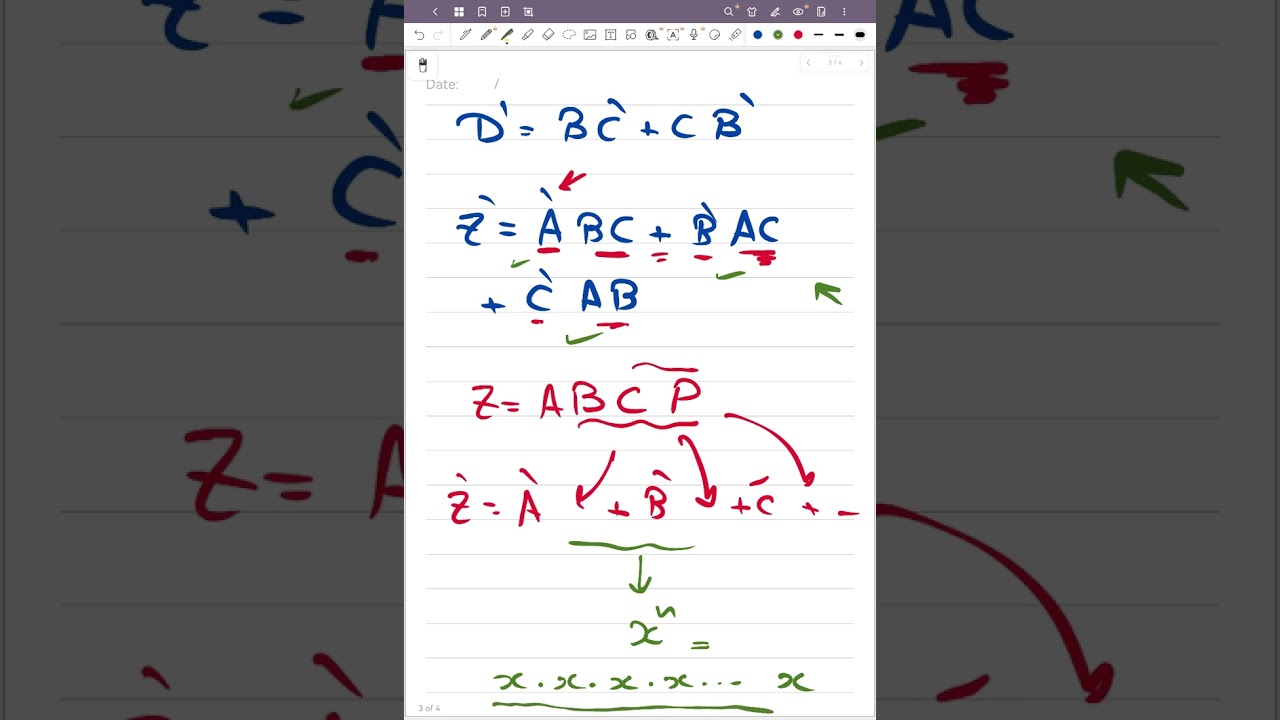 3/4
Date: /
D' = BC' + CB'
Z' = A'BC + B'AC
+ C'AB
Z = ABCP
Z' = A' + B' + C' + -
xⁿ =
x.x.x.x... x
3 of 4